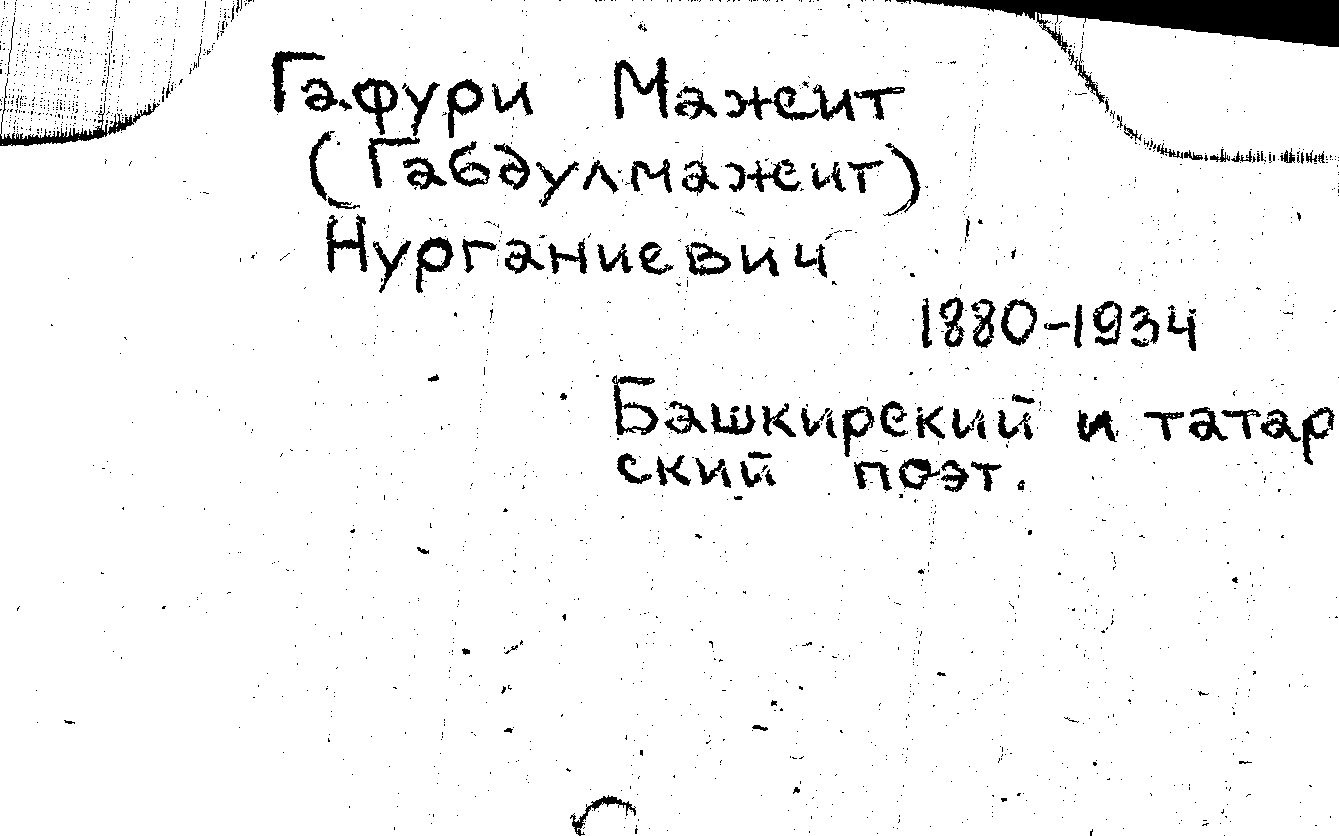 Гафури Мажит
(Габдулмажит)
Нурганиевич
1880-1934
Башкирский и татар
ский поэт.